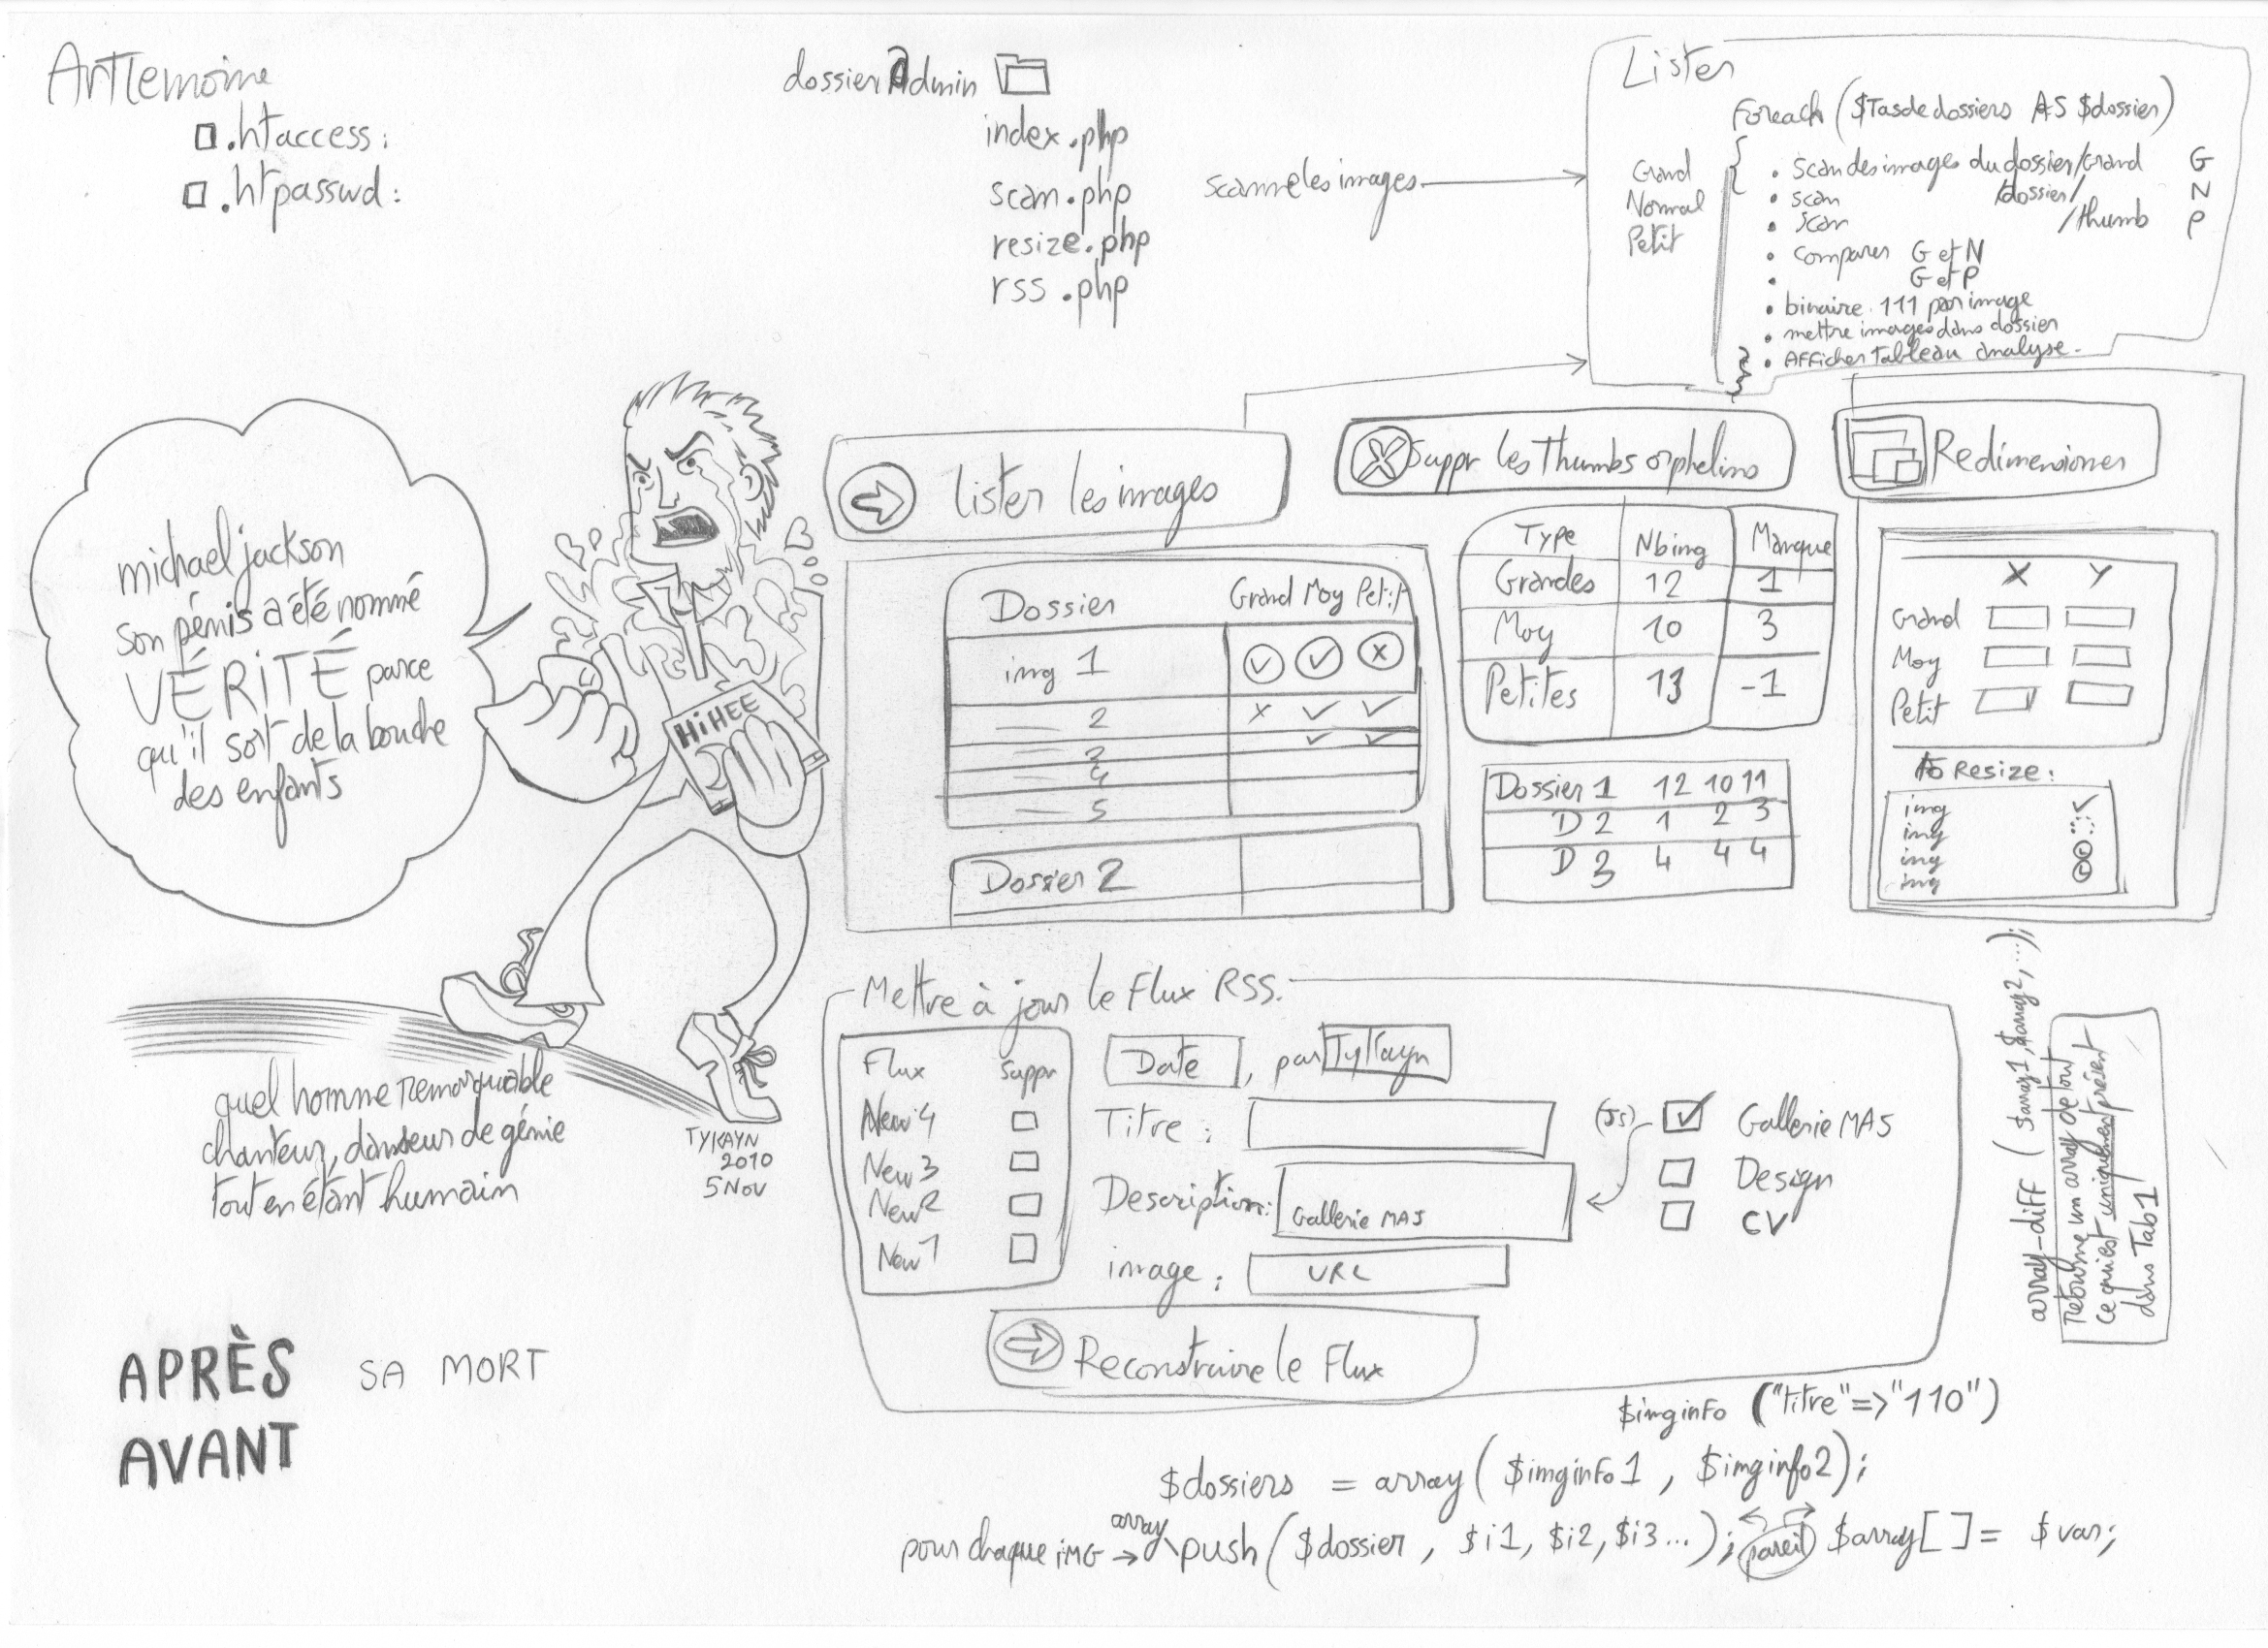 Artlemoine
.htaccess:
.htpasswd:
dossier admin
index.php
scan.php
resize.php
rss.php
scanne les images
Lister
Foreach ($Tasdedossiers AS $dossier)
{
Grand
Normal
Petit
• scan des images du dossier/Grand G
• scan /dossier/ N
• scan /thumb P
• comparer G et N
• G et P
• binaire 111 par image
• mettre images dans dossier
• Afficher tableau analyse.
}
michael jackson
son pénis a été nommé
VÉRITÉ parce
qu'il sort de la bouche
des enfants
HiHEE
quel homme remarquable
chanteur, danseur de génie
tout en étant humain
TYKAYN
2010
5 Nov
APRÈS SA MORT
AVANT
Lister les images
Suppr les Thumbs orphelins
Redimensionner
Dossier Grand Moy Petit
img 1
2
3
4
5
Dossier 2
Type Nbimg Manque
Grandes 12 1
Moy 10 3
Petites 13 -1
Dossier 1 12 10 11
D 2 1 2 3
D 3 4 4 4
X Y
Grand
Moy
Petit
To Resize:
img
img
img
img
Mettre à jour le Flux RSS.
Flux Suppr
New 4
New 3
New 2
New 1
Date, par TyKayn
Titre :
Description: Gallerie MAJ
image : URL
(JS)
Gallerie MAJ
Design
CV
Reconstruire le Flux
array-diff ($array1, $array2, ...);
retourne un array de tout
ce qui est uniquement présent
dans Tab1
$imginfo ("titre"=>"110")
$dossiers = array($imginfo1, $imginfo2);
pour chaque iMG → array\push($dossier, $i1, $i2, $i3...); pareil $array[] = $var;